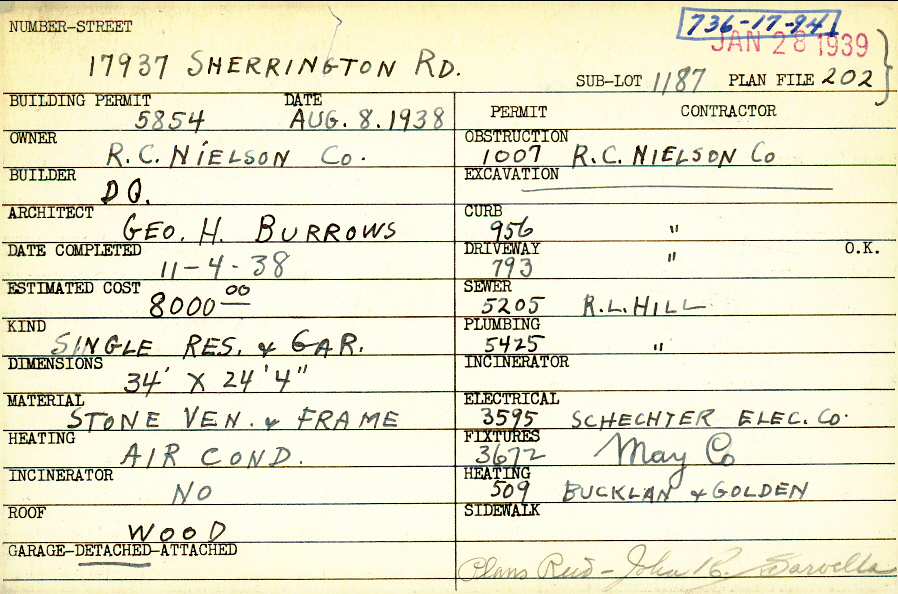 NUMBER-STREET
736-17-941
JAN 28 1939
17937 SHERRINGTON RD.
SUB-LOT 1187 PLAN FILE 202
BUILDING PERMIT DATE
5854 AUG. 8. 1938
OWNER
R.C. NIELSON Co.
BUILDER
DO.
ARCHITECT
GEO. H. BURROWS
DATE COMPLETED
11-4-38
ESTIMATED COST
8000 00
KIND
SINGLE RES. & GAR.
DIMENSIONS
34' X 24'4"
MATERIAL
STONE VEN. & FRAME
HEATING
AIR COND.
INCINERATOR
NO
ROOF
WOOD
GARAGE-DETACHED-ATTACHED
PERMIT CONTRACTOR
OBSTRUCTION
1007 R.C. NIELSON Co
EXCAVATION
CURB
956 "
DRIVEWAY O.K.
793 "
SEWER
5205 R.L. HILL
PLUMBING
5425 "
INCINERATOR
ELECTRICAL
3595 SCHECHTER ELEC. Co.
FIXTURES
3672 May Co
HEATING
509 BUCKLAN & GOLDEN
SIDEWALK
Plans - John R.